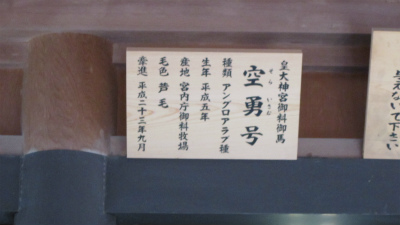 皇大神宮御料御馬
空勇号
そら いさむ
種類 アングロアラブ種
生年 平成五年
産地 宮内庁御料牧場
毛色 芦毛
牽進 平成二十三年九月
与えないで下さい